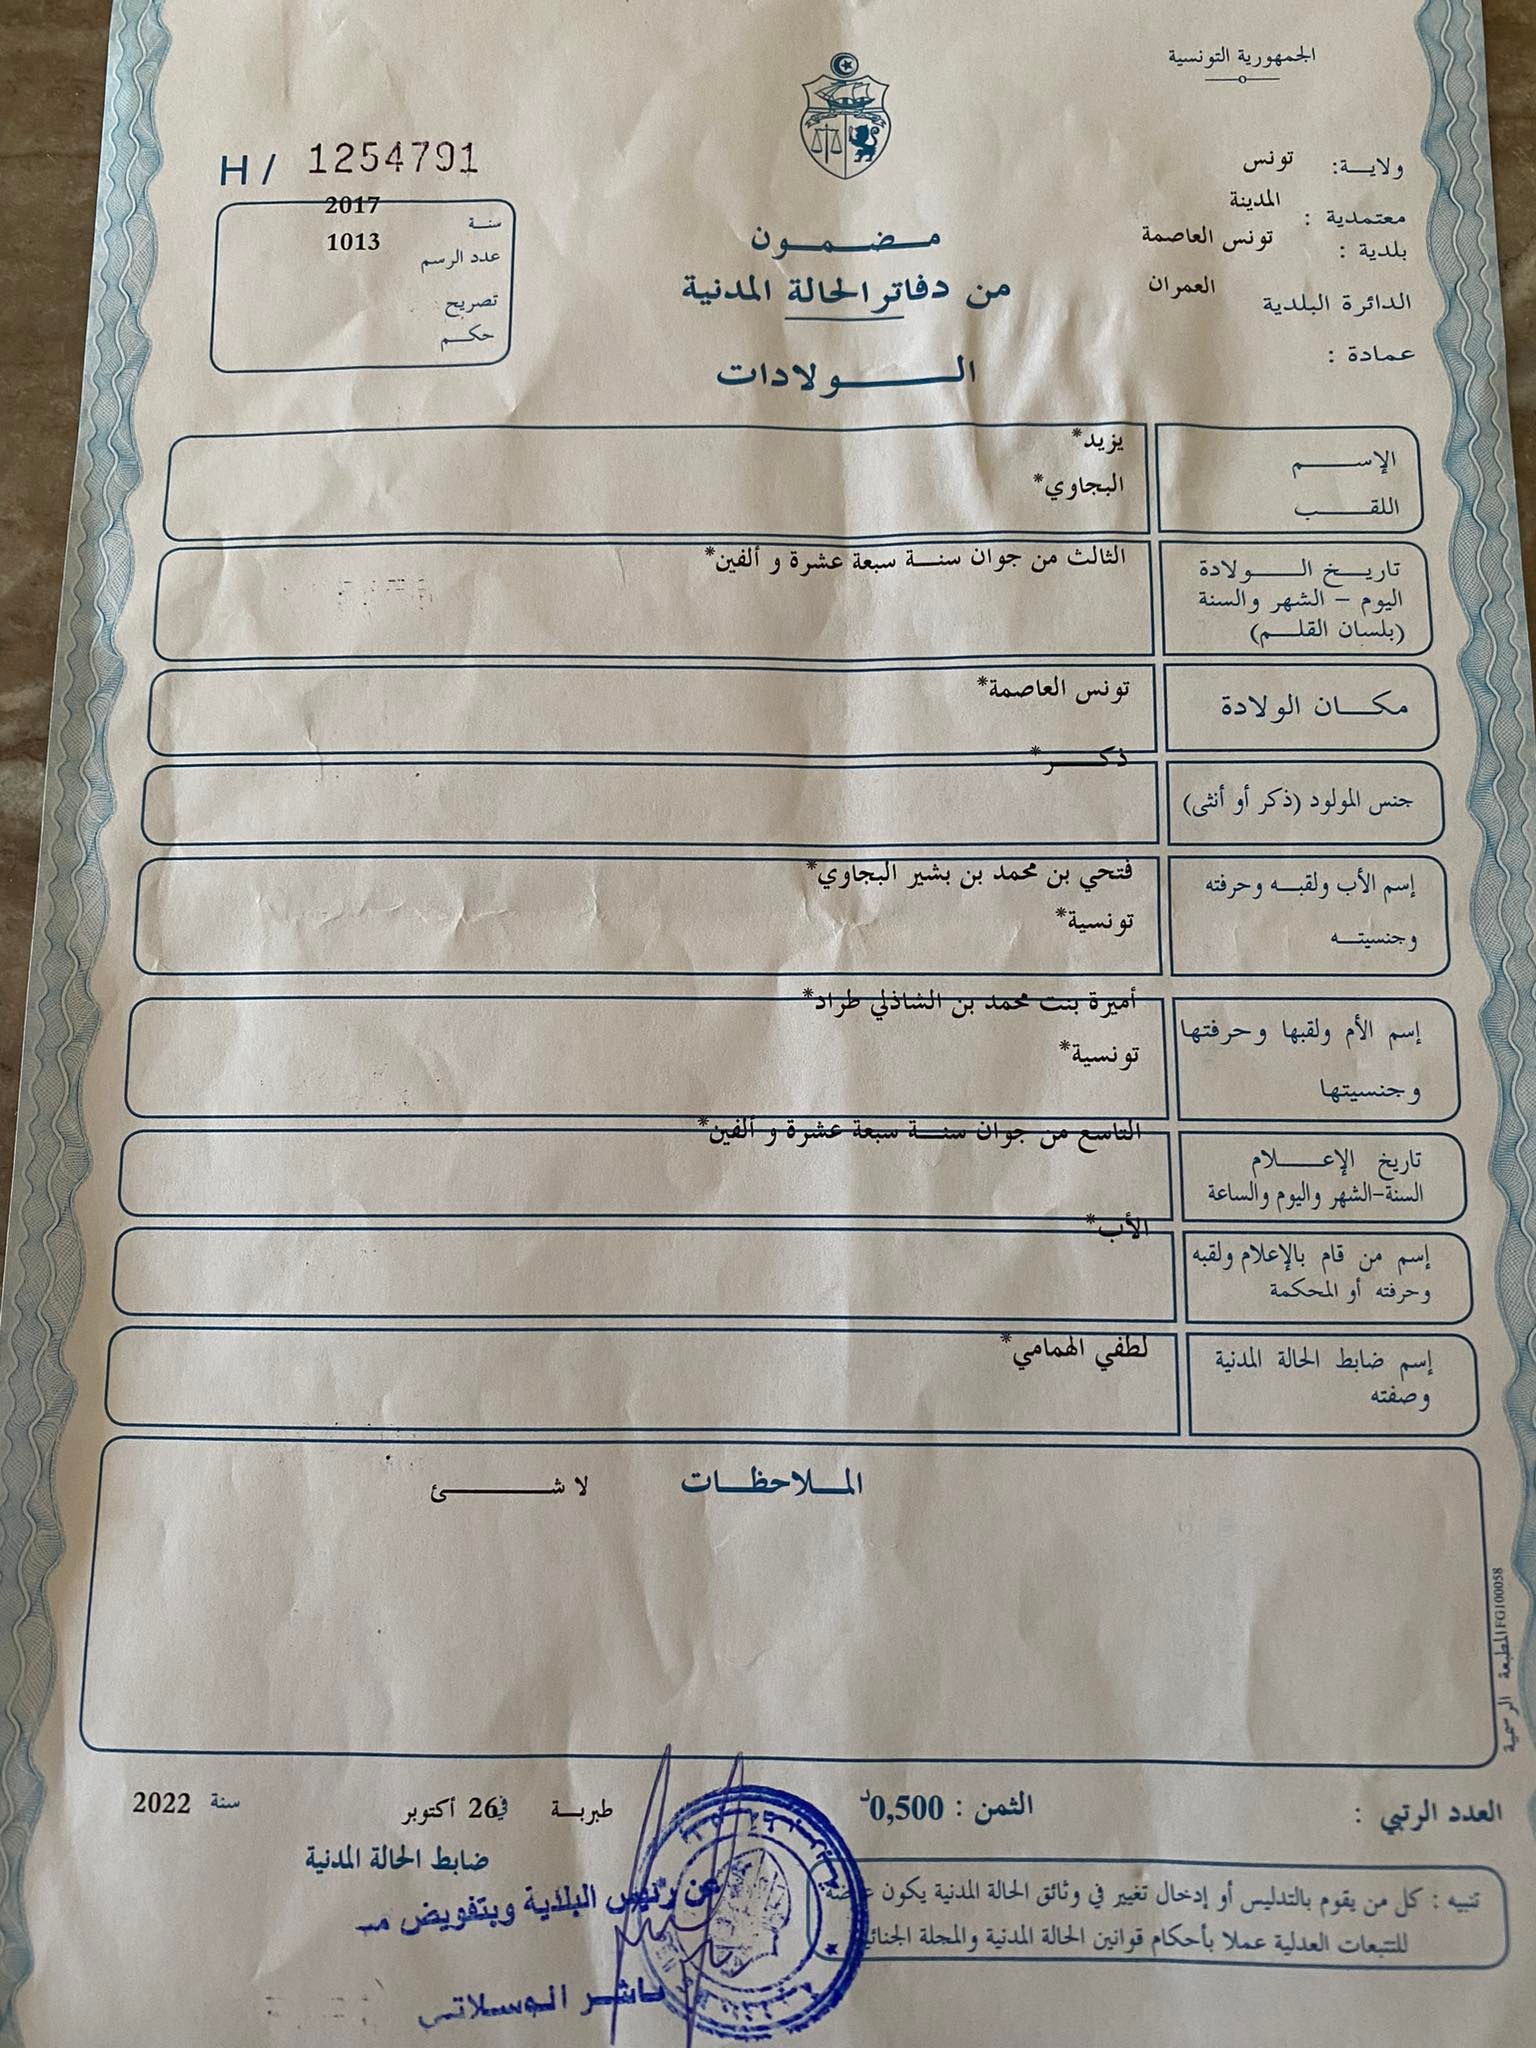 الجمهورية التونسية
ولاية: تونس
معتمدية : المدينة
بلدية : تونس العاصمة
الدائرة البلدية العمران
عمادة :
H / 1254791
سنة 2017
عدد الرسم 1013
تصريح
حكم
مضمون
من دفاتر الحالة المدنية
الولادات
الإسم يزيد*
اللقب البجاوي*
تاريخ الولادة الثالث من جوان سنة سبعة عشرة و ألفين*
اليوم - الشهر والسنة
(بلسان القلم)
مكان الولادة تونس العاصمة*
جنس المولود (ذكر أو أنثى) ذكر*
إسم الأب ولقبه وحرفته فتحي بن محمد بن بشير البجاوي*
وجنسيته تونسية*
إسم الأم ولقبها وحرفتها أميرة بنت محمد بن الشاذلي طراد*
وجنسيتها تونسية*
تاريخ الإعلام التاسع من جوان سنة سبعة عشرة و ألفين*
السنة-الشهر واليوم والساعة
إسم من قام بالإعلام ولقبه الأب*
وحرفته أو المحكمة
إسم ضابط الحالة المدنية لطفي الهمامي*
وصفته
الملاحظات لا شئ
المطبعة الرسمية FG100058
العدد الرتبي :
الثمن : 0,500د
طبربة في 26 أكتوبر سنة 2022
ضابط الحالة المدنية
عن رئيس البلدية وبتفويض منه
تنبيه : كل من يقوم بالتدليس أو إدخال تغيير في وثائق الحالة المدنية يكون عرضة
للتتبعات العدلية عملا بأحكام قوانين الحالة المدنية والمجلة الجنائية
الوسلاتي